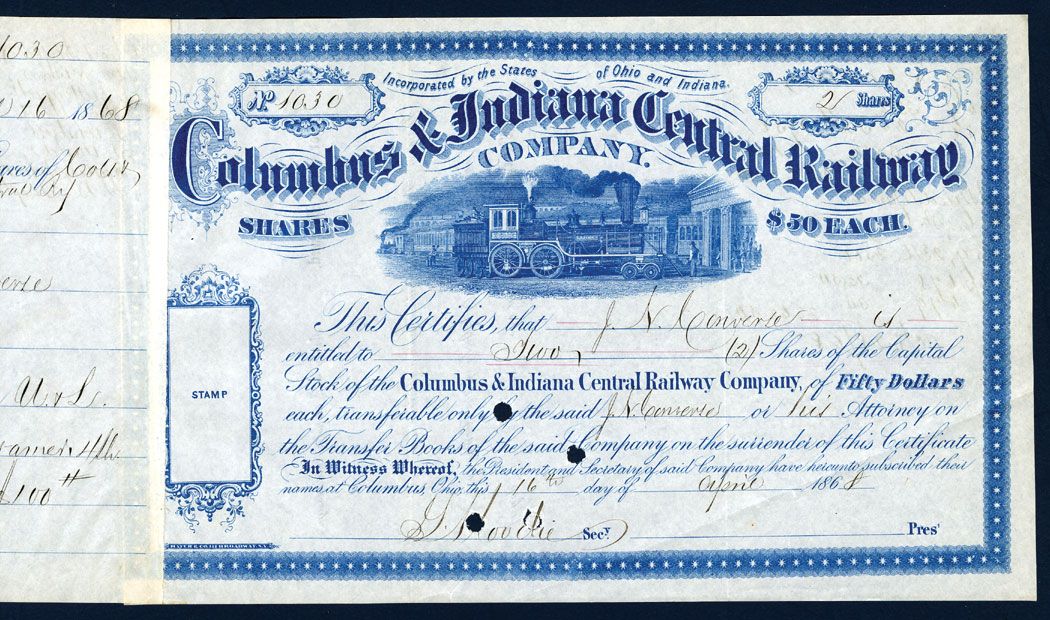 1030
16 1868
ares of Col &
Ry
No 1030
Incorporated by the States of Ohio and Indiana.
2 Shares
Columbus & Indiana Central Railway
COMPANY.
SHARES
$50 EACH.
This Certifies, that J. N. Converse is
entitled to Two (2) Shares of the Capital
Stock of the Columbus & Indiana Central Railway Company, of Fifty Dollars
each, transferable only by the said J. N. Converse or his Attorney on
the Transfer Books of the said Company on the surrender of this Certificate
In Witness Whereof, the President and Secretary of said Company have hereunto subscribed their
names at Columbus, Ohio, this 16th day of April 1868
Secy. Pres't
STAMP
$100